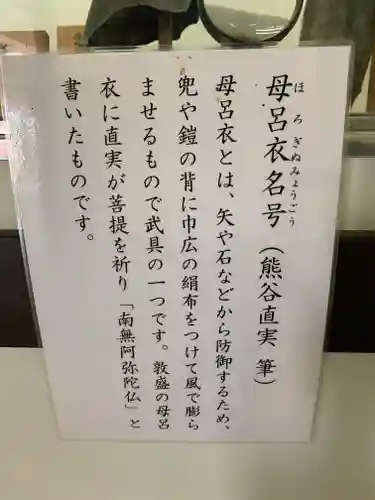 母呂衣名号（熊谷直実 筆）
ほろぎぬみょうごう
母呂衣とは、矢や石などから防御するため、
兜や鎧の背に巾広の絹布をつけて風で膨ら
ませるもので武具の一つです。敦盛の母呂
衣に直実が菩提を祈り「南無阿弥陀仏」と
書いたものです。